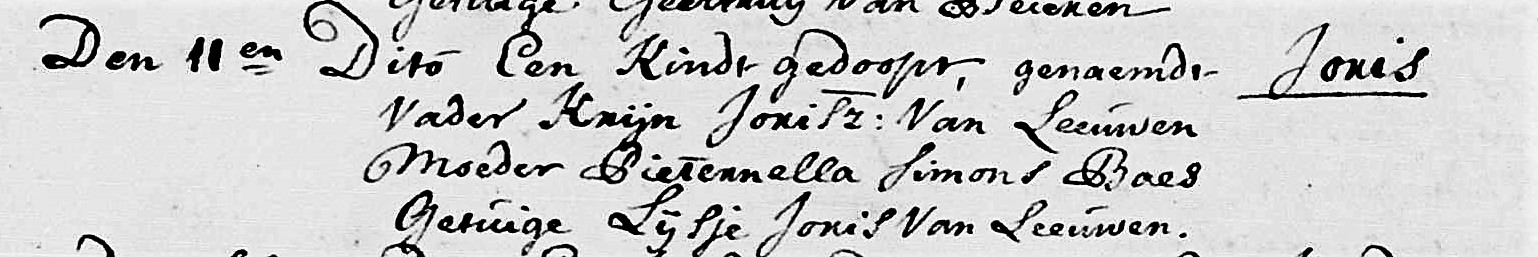 Getuige Geertruy van
Den 11en Dito Een Kindt gedoopt, genaemdt Joris
Vader Krijn Jorisz: Van Leeuwen
Moeder Pieternella Simons Baes
Getuige Lijsje Joris Van Leeuwen.